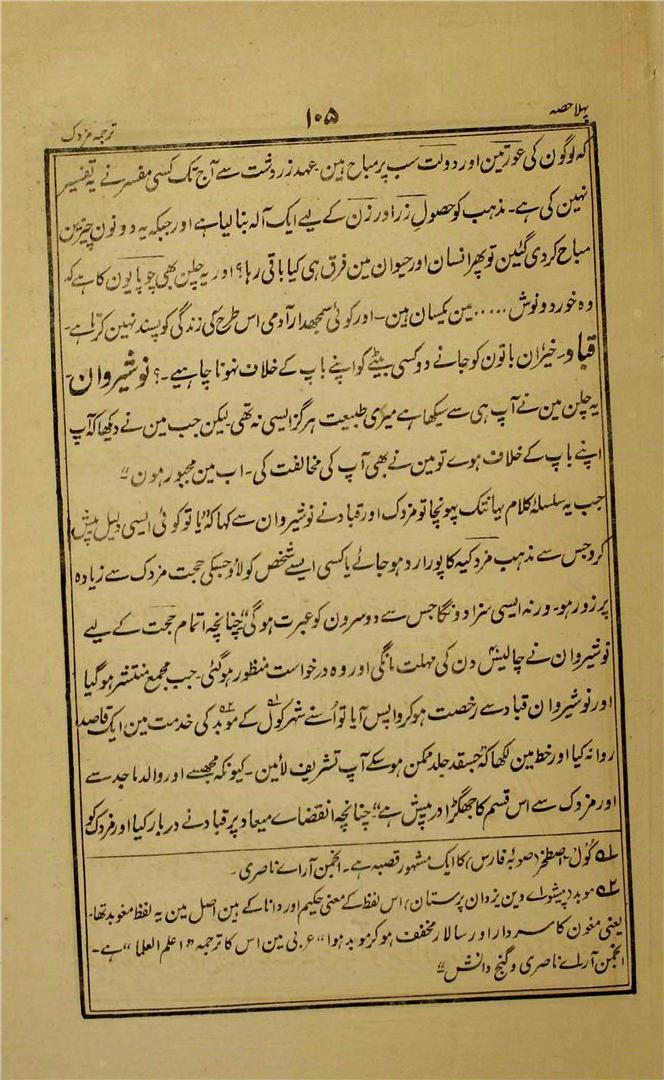 پہلا حصہ
۱۰۵
ترجمہ مزدک
کہ لوگون کی عورتین اور دولت سب پر مباح ہین۔ عہد زردشت سے آج تک کسی مفسر نے یہ تفسیر
نہین کی ہے۔ مذہب کو حصولِ زر اور زن کے لیے ایک آلہ بنا لیا ہے اور جبکہ یہ دونون چیزین
مباح کردی گئین تو پھر انسان اور حیوان مین فرق ہی کیا باقی رہا؟ اور یہ چلن بھی چوپایون کا ہے کہ
وہ خورد و نوش ..... مین یکسان ہین۔ اور کوئی سمجھدار آدمی اس طرح کی زندگی کو پسند نہین کرتا ہے۔
قباد۔ خیر ان باتون کو جانے دو کسی بیٹے کو اپنے باپ کے خلاف نہونا چاہیے۔؟ نوشیروان۔
یہ چلن مین نے آپ ہی سے سیکھا ہے میری طبیعت ہرگز ایسی نہ تھی لیکن جب مین نے دیکھا کہ آپ
اپنے باپ کے خلاف ہوے تو مین نے بھی آپ کی مخالفت کی۔ اب مین مجبور ہون"
جب یہ سلسلۂ کلام یہانتک پہونچا تو مزدک اور قباد نے نوشیروان سے کہا کہ "یا تو کوئی ایسی دلیل پیش
کرو جس سے مذہب مزدکیہ کا پورا رد ہو جائے یا کسی ایسے شخص کو لاؤ جسکی حجت مزدک سے زیادہ
پر زور ہو۔ ورنہ ایسی سزا دونگا جس سے دوسرون کو عبرت ہوگی" چنانچہ اتمام حجت کے لیے
نوشیروان نے چالیس۴۰ دن کی مہلت مانگی اور وہ درخواست منظور ہوگئی۔ جب مجمع منتشر ہوگیا
اور نوشیروان قباد سے رخصت ہوکر واپس آیا تو اُسنے شہر کول۱ کے موبد۲ کی خدمت مین ایک قاصد
روانہ کیا اور خط مین لکھا کہ "جسقدر جلد ممکن ہوسکے آپ تشریف لائین۔ کیونکہ مجھسے اور والد ماجد سے
اور مزدک سے اس قسم کا جھگڑا درپیش ہے" چنانچہ انقضاے میعاد پر قباد نے دربار کیا اور مزدک کو
۱؎ کول۔ اصطخر (صوبۂ فارس) کا ایک مشہور قصبہ ہے۔ انجمن آراے ناصری۔
۲؎ موبد (پیشواے دین یزدان پرستان) اس لفظ کے معنی حکیم اور دانا کے ہین اصل مین یہ لفظ مغوبد تھا۔
یعنی مغون کا سردار اور سالار مخفف ہوکر موبد ہوا" عربی مین اس کا ترجمہ "اعلم العلما" ہے۔
انجمن آراے ناصری و گنج دانش"